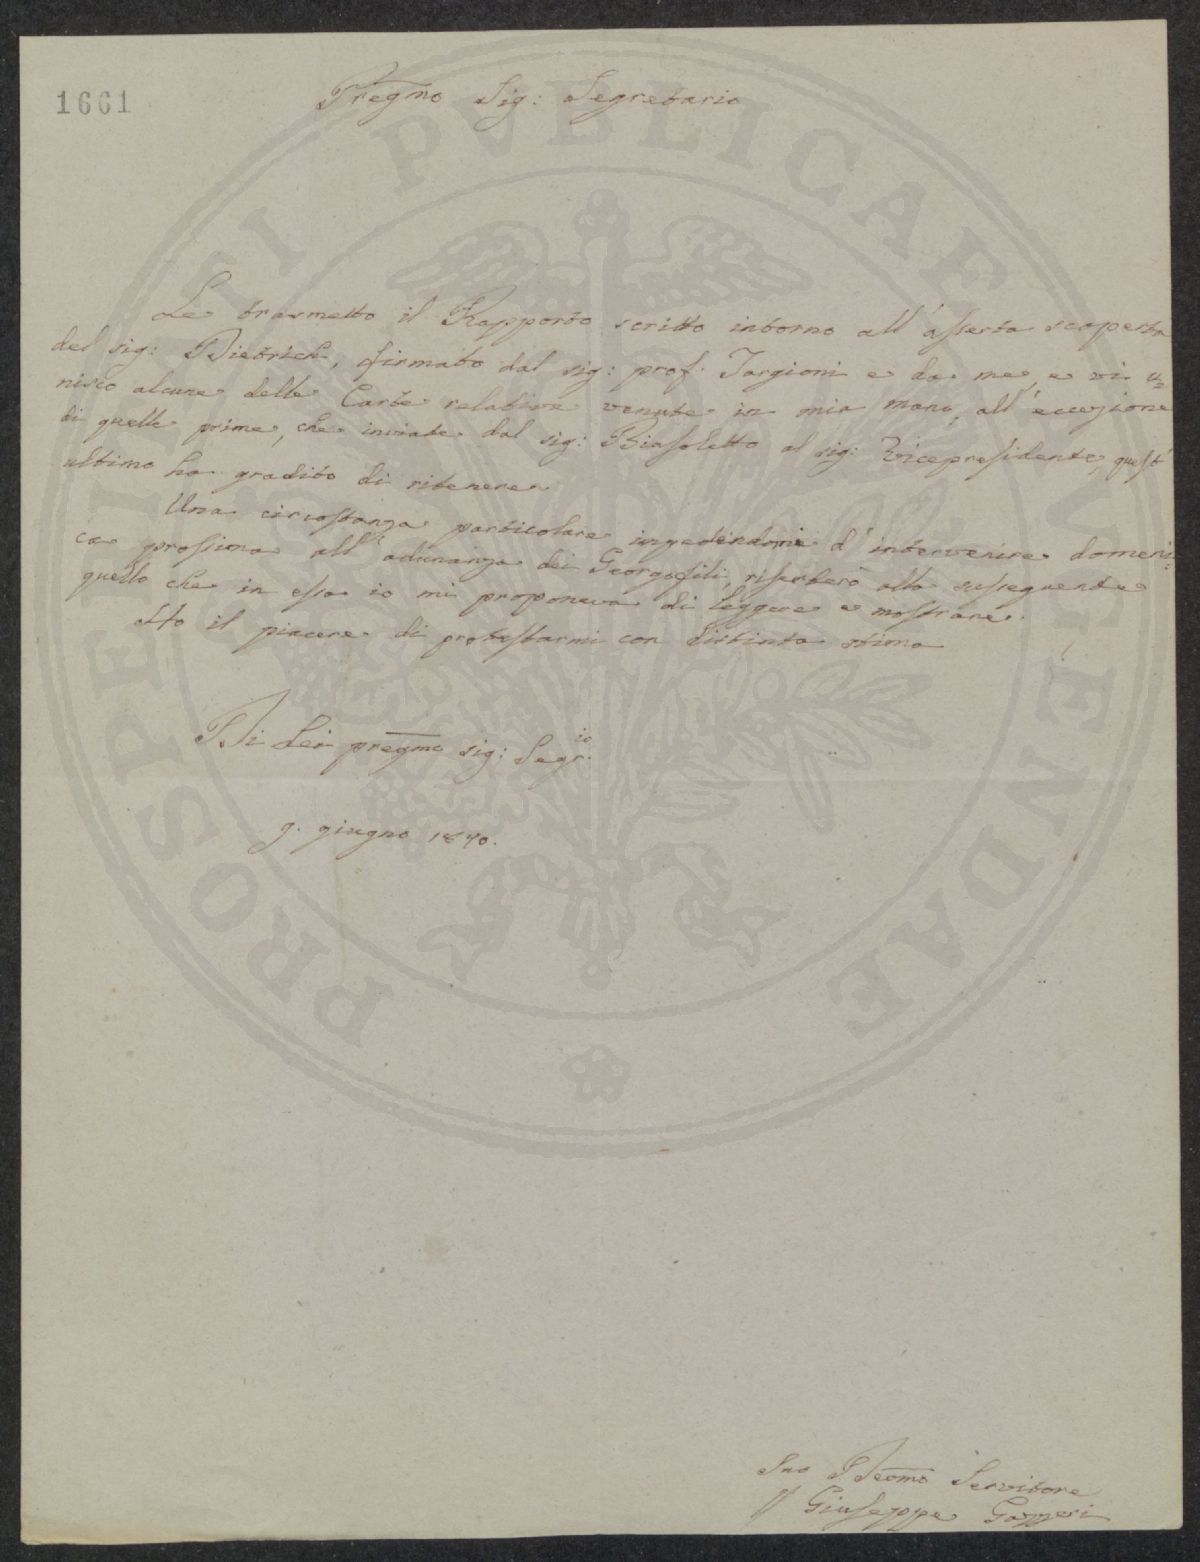 1661
Pregmo Sig: Segretario
Le trasmetto il Rapporto scritto intorno all'asserta scoperta
del sig: Dietrich, firmato dal sig: prof. Targioni e da me, e vi u=
nisco alcune delle Carte relative venute in mia mano, all'eccezione
di quelle prime, che inviate dal sig: Biasoletto al sig: Vicepresidente, quest'
ultimo ha gradito di ritenere.
Una circostanza particolare impedendomi d'intervenire domeni=
ca prossima all'adunanza dei Georgofili, riserberò alla susseguente
quello che in essa io mi proponeva di leggere e mostrare.
Ho il piacere di protestarmi con distinta stima
Di Lei pregmo sig: Segr.io
9. giugno 1840.
Suo Devmo Servitore
Giuseppe Gazzeri
PROSPERITATI PVBLICAE AVGENDAE